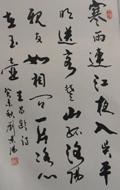 寒雨連江夜入吳平
明送客楚山孤洛陽
親友如相問一片冰心
在玉壺
王昌齡詩